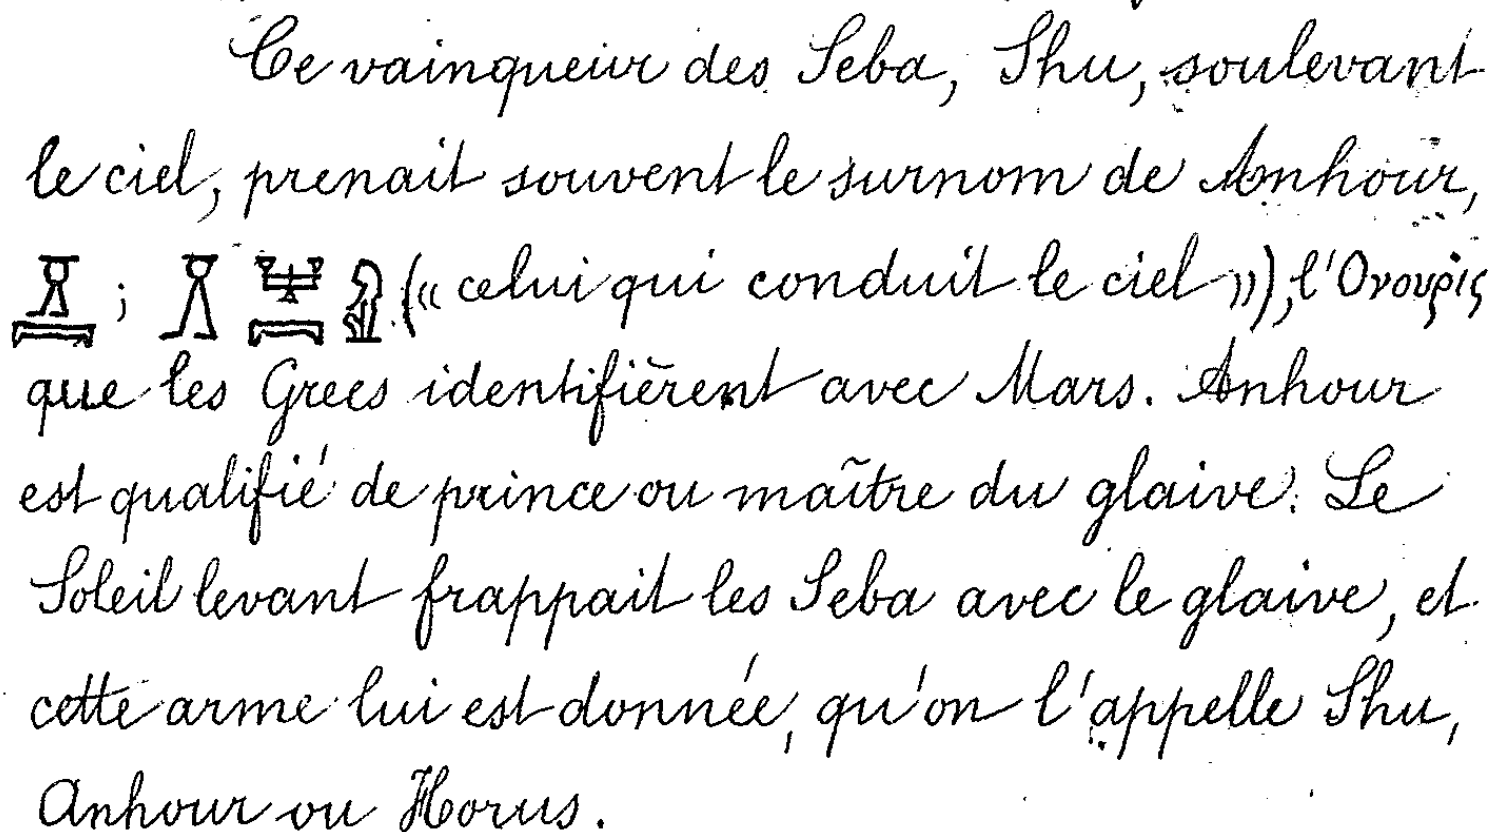 Ce vainqueur des Seba, Shu, soulevant
le ciel, prenait souvent le surnom de Anhour,
; (« celui qui conduit le ciel »), l'Ονουρις
que les Grecs identifièrent avec Mars. Anhour
est qualifié de prince ou maître du glaive. Le
Soleil levant frappait les Seba avec le glaive, et
cette arme lui est donnée, qu'on l'appelle Shu,
Anhour ou Horus.